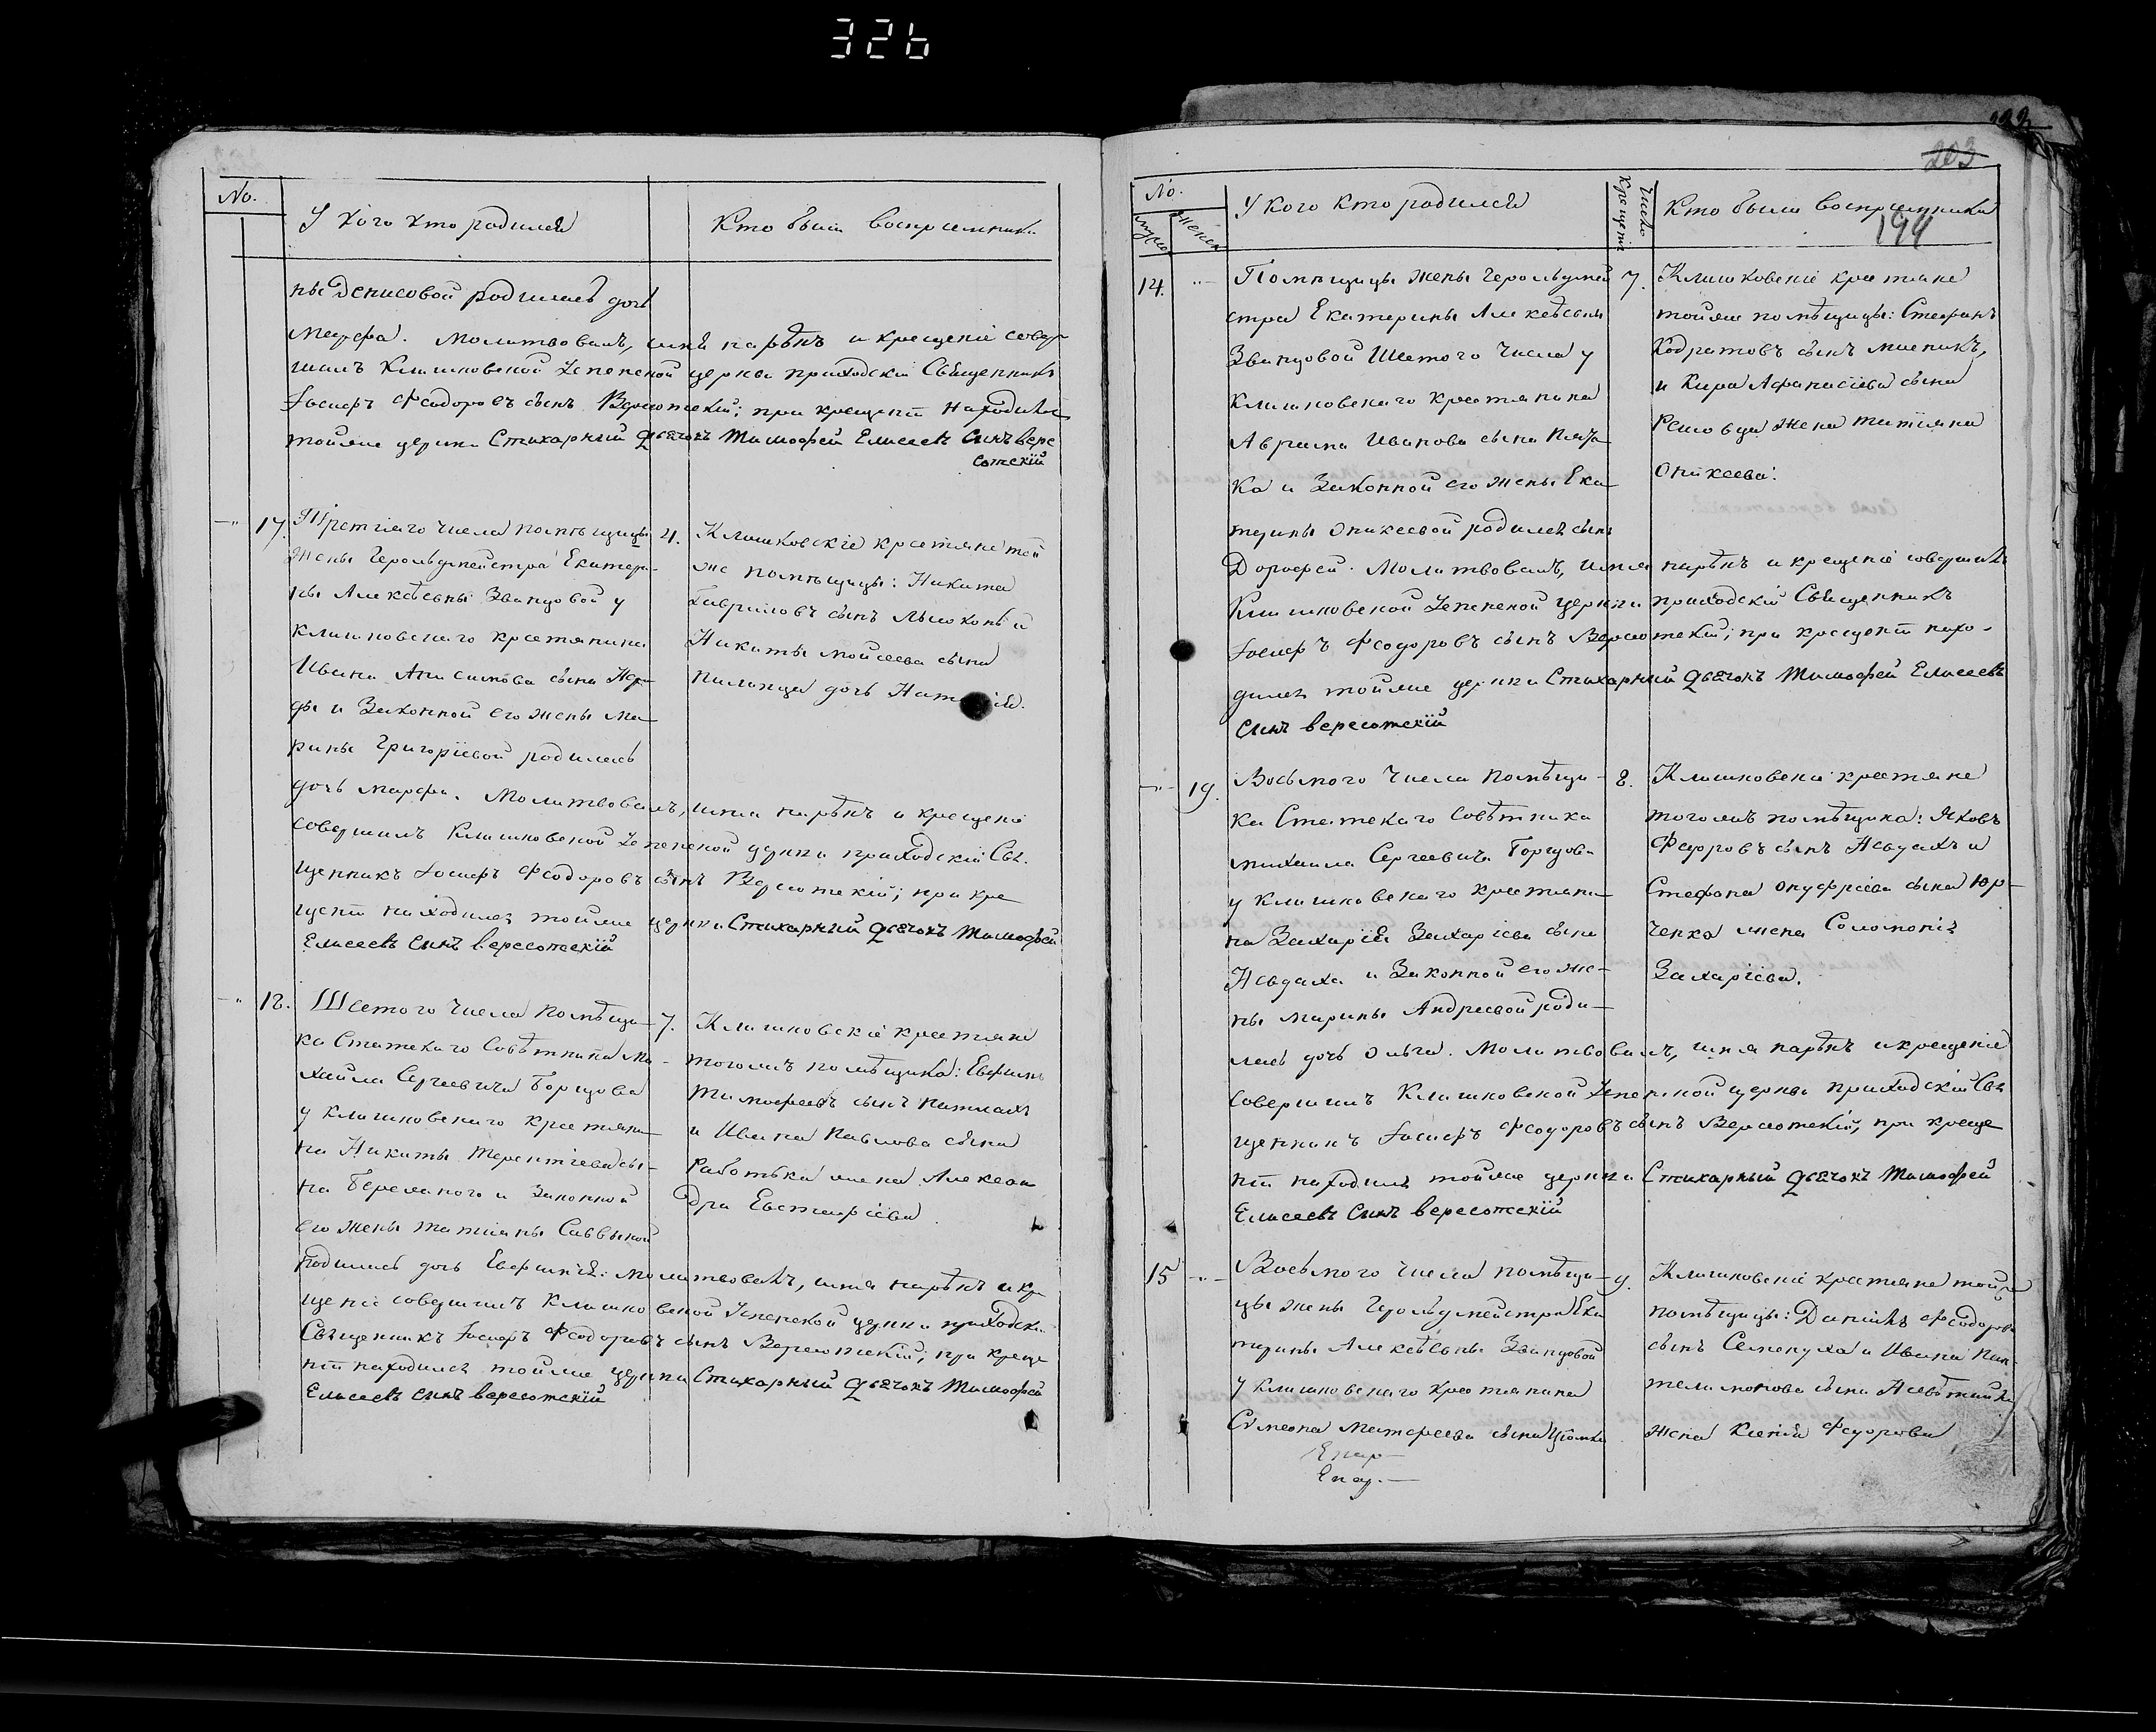 326
No.
У кого кто родился
Кто были воспріемники
ны Денисовой родилась дочь
Марфа. Молитвовалъ, имя нарѣкъ и крещеніе совер
шилъ Клишковской Успенской церкви приходскій Священникъ
Іосифъ Феодоровъ сынъ Вересотскій; при крещеніи находился
тойже церкви Стихарный Дьячокъ Тимофей Елисеевъ Синъ Вере
сотскій
17.
Третьяго числа помѣщицы
жены Герольдмейстра Екатери-
ны Алексѣевны Званцовой у
Клишковскаго крестянина
Ивана Анисимова сына
и Законной его жены Ма
рины Григоріевой родилась
дочь Марфа. Молитвовалъ, имя нарѣкъ и крещеніе
совершилъ Клишковской Успенской церкви приходскій Свя
щенникъ Іосифъ Феодоровъ сынъ Вересотскій; при кре
щеніи находился тойже церкви Стихарный Дьячокъ Тимофей
Елисеевъ Синъ Вересотскій
4.
Клишковскіе крестяне той
же помѣщицы: Никита
Гавриловъ сынъ
Никиты Мойсеева сына
дочь
18.
Шестого числа помѣщи
ка Статскаго Совѣтника Ми-
хайла Сергеевича Борщова
у Клишковскаго крестяни
на Никиты Терентіева сы-
на и Законной
его жены Татіаны Саввиной
родилась дочь Евфимія: молитвовалъ, имя нарѣкъ и кре
щеніе совершилъ Клишковской Успенской церкви приходскій
Священникъ Іосифъ Феодоровъ сынъ Вересотскій; при креще
ніи находился тойже церкви Стихарный Дьячокъ Тимофей
Елисеевъ Синъ Вересотскій
7.
Клишковскіе крестяне
тогожъ помѣщика: Евфимъ
Тимофеевъ сынъ
и Ивана Павлова сына
жена Алексан
дра Евстафіева
203
194
No.
мужес
женск
У кого кто родился
Число
Крещенія
Кто были воспріемники
14.
Помѣщицы жены Герольдмей
стра Екатерины Алексѣевны
Званцовой Шестого числа у
Клишковскаго крестянина
Аврама Иванова сына
ка и Законной его жены Ека
терины Оникеевой родился сынъ
Дорофей. Молитвовалъ, имя нарѣкъ и крещеніе совершилъ
Клишковской Успенской церкви приходскій Священникъ
Іосифъ Феодоровъ сынъ Вересотскій; при крещеніи нахо-
дился тойже церкви Стихарный Дьячокъ Тимофей Елисеевъ
Синъ Вересотскій
7.
Клишковскіе крестяне
тойже помѣщицы: Стефанъ
Кодратовъ сынъ
и Кира Афанасіева сына
жена Татіана
Оникеева.
19.
Восьмого числа помѣщи-
ка Статскаго Совѣтника
Михаила Сергеевича Борщова
у Клишковскаго крестяни
на Захарія Захаріева сына
Невдаха и Законной его же-
ны Марины Андреевой роди-
лась дочь Ольга. Молитвовалъ, имя нарѣкъ и крещеніе
совершилъ Клишковской Успенской церкви приходскій Свя
щенникъ Іосифъ Феодоровъ сынъ Вересотскій, при креще
ніи находился тойже церкви Стихарный Дьячокъ Тимофей
Елисеевъ Синъ Вересотскій
8.
Клишковскіе крестяне
тогожъ помѣщика: Яковъ
Федоровъ сынъ Невдахъ и
Стефана Онуфріева сына Юр-
ченка жена Соломонія
Захаріева.
15
Восьмого числа помѣщи-
цы жены Герольдмейстра Ека
терины Алексѣевны Званцовой
у Клишковскаго крестянина
Симеона Матфеева сына
9.
Клишковскіе крестяне тойже
помѣщицы: Даніилъ Феодоровъ
сынъ Семенуха и Ивана Пан-
телимонова сына
жена Ксенія Федорова